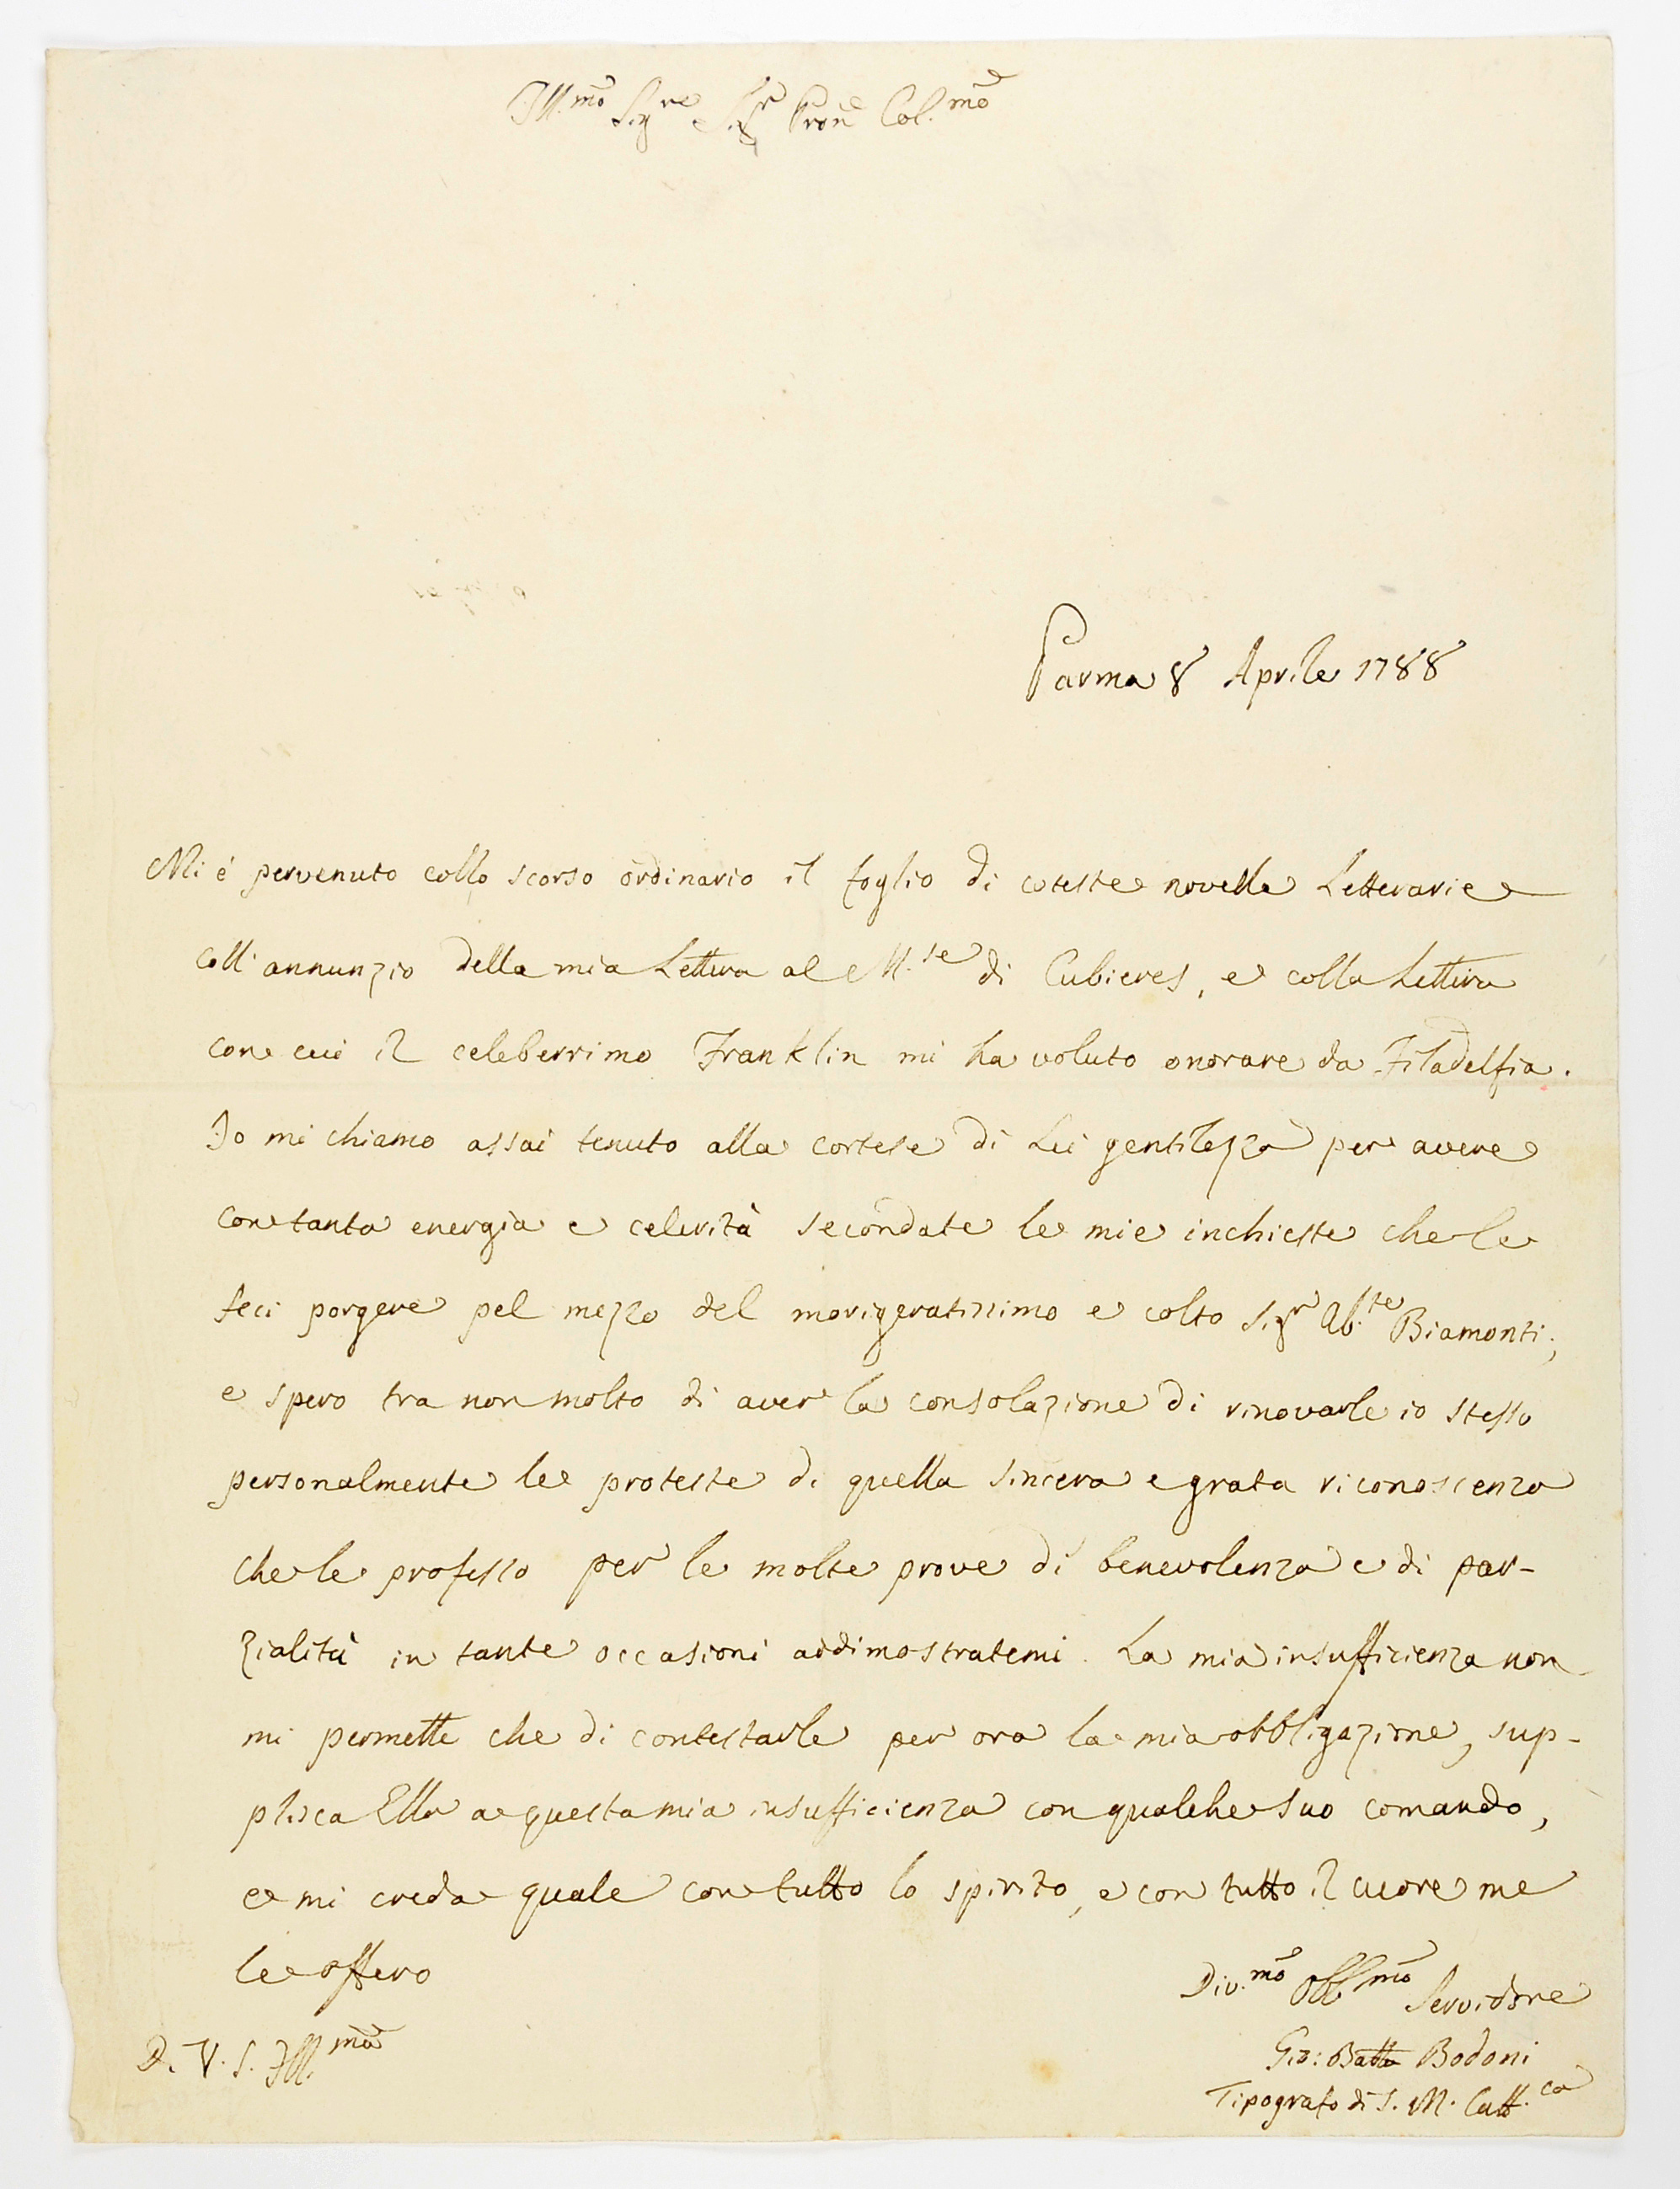 Ill.mo Sig.re Sig.r Pron Col.mo
Parma 8 Aprile 1788
Mi é pervenuto collo scorso ordinario il foglio di coteste novelle Letterarie
coll'annunzio della mia Lettera al M.se di Cubieres, e colla Lettera
con cui il celeberrimo Franklin mi ha voluto onorare da Filadelfia.
Io mi chiamo assai tenuto alla cortese di Lei gentilezza per avere
con tanta energia e celerità secondate le mie inchieste che le
feci porgere pel mezzo del morigeratissimo e colto Sig.r Ab.te Biamonti;
e spero tra non molto di aver la consolazione di rinovarle io stesso
personalmente le proteste di quella sincera e grata riconoscenza
che le professo per le molte prove di benevolenza e di par-
zialità in tante occasioni addimostratemi. La mia insufficienza non
mi permette che di contestarle per ora la mia obbligazione, sup-
plisca Ella a questa mia insufficienza con qualche suo comando,
e mi creda quale con tutto lo spirito, e con tutto il cuore me
le offero
D. V. S. Ill.ma
Div.mo Obb.mo Servidore
Gio: Batta Bodoni
Tipografo di S. M. Catt.ca